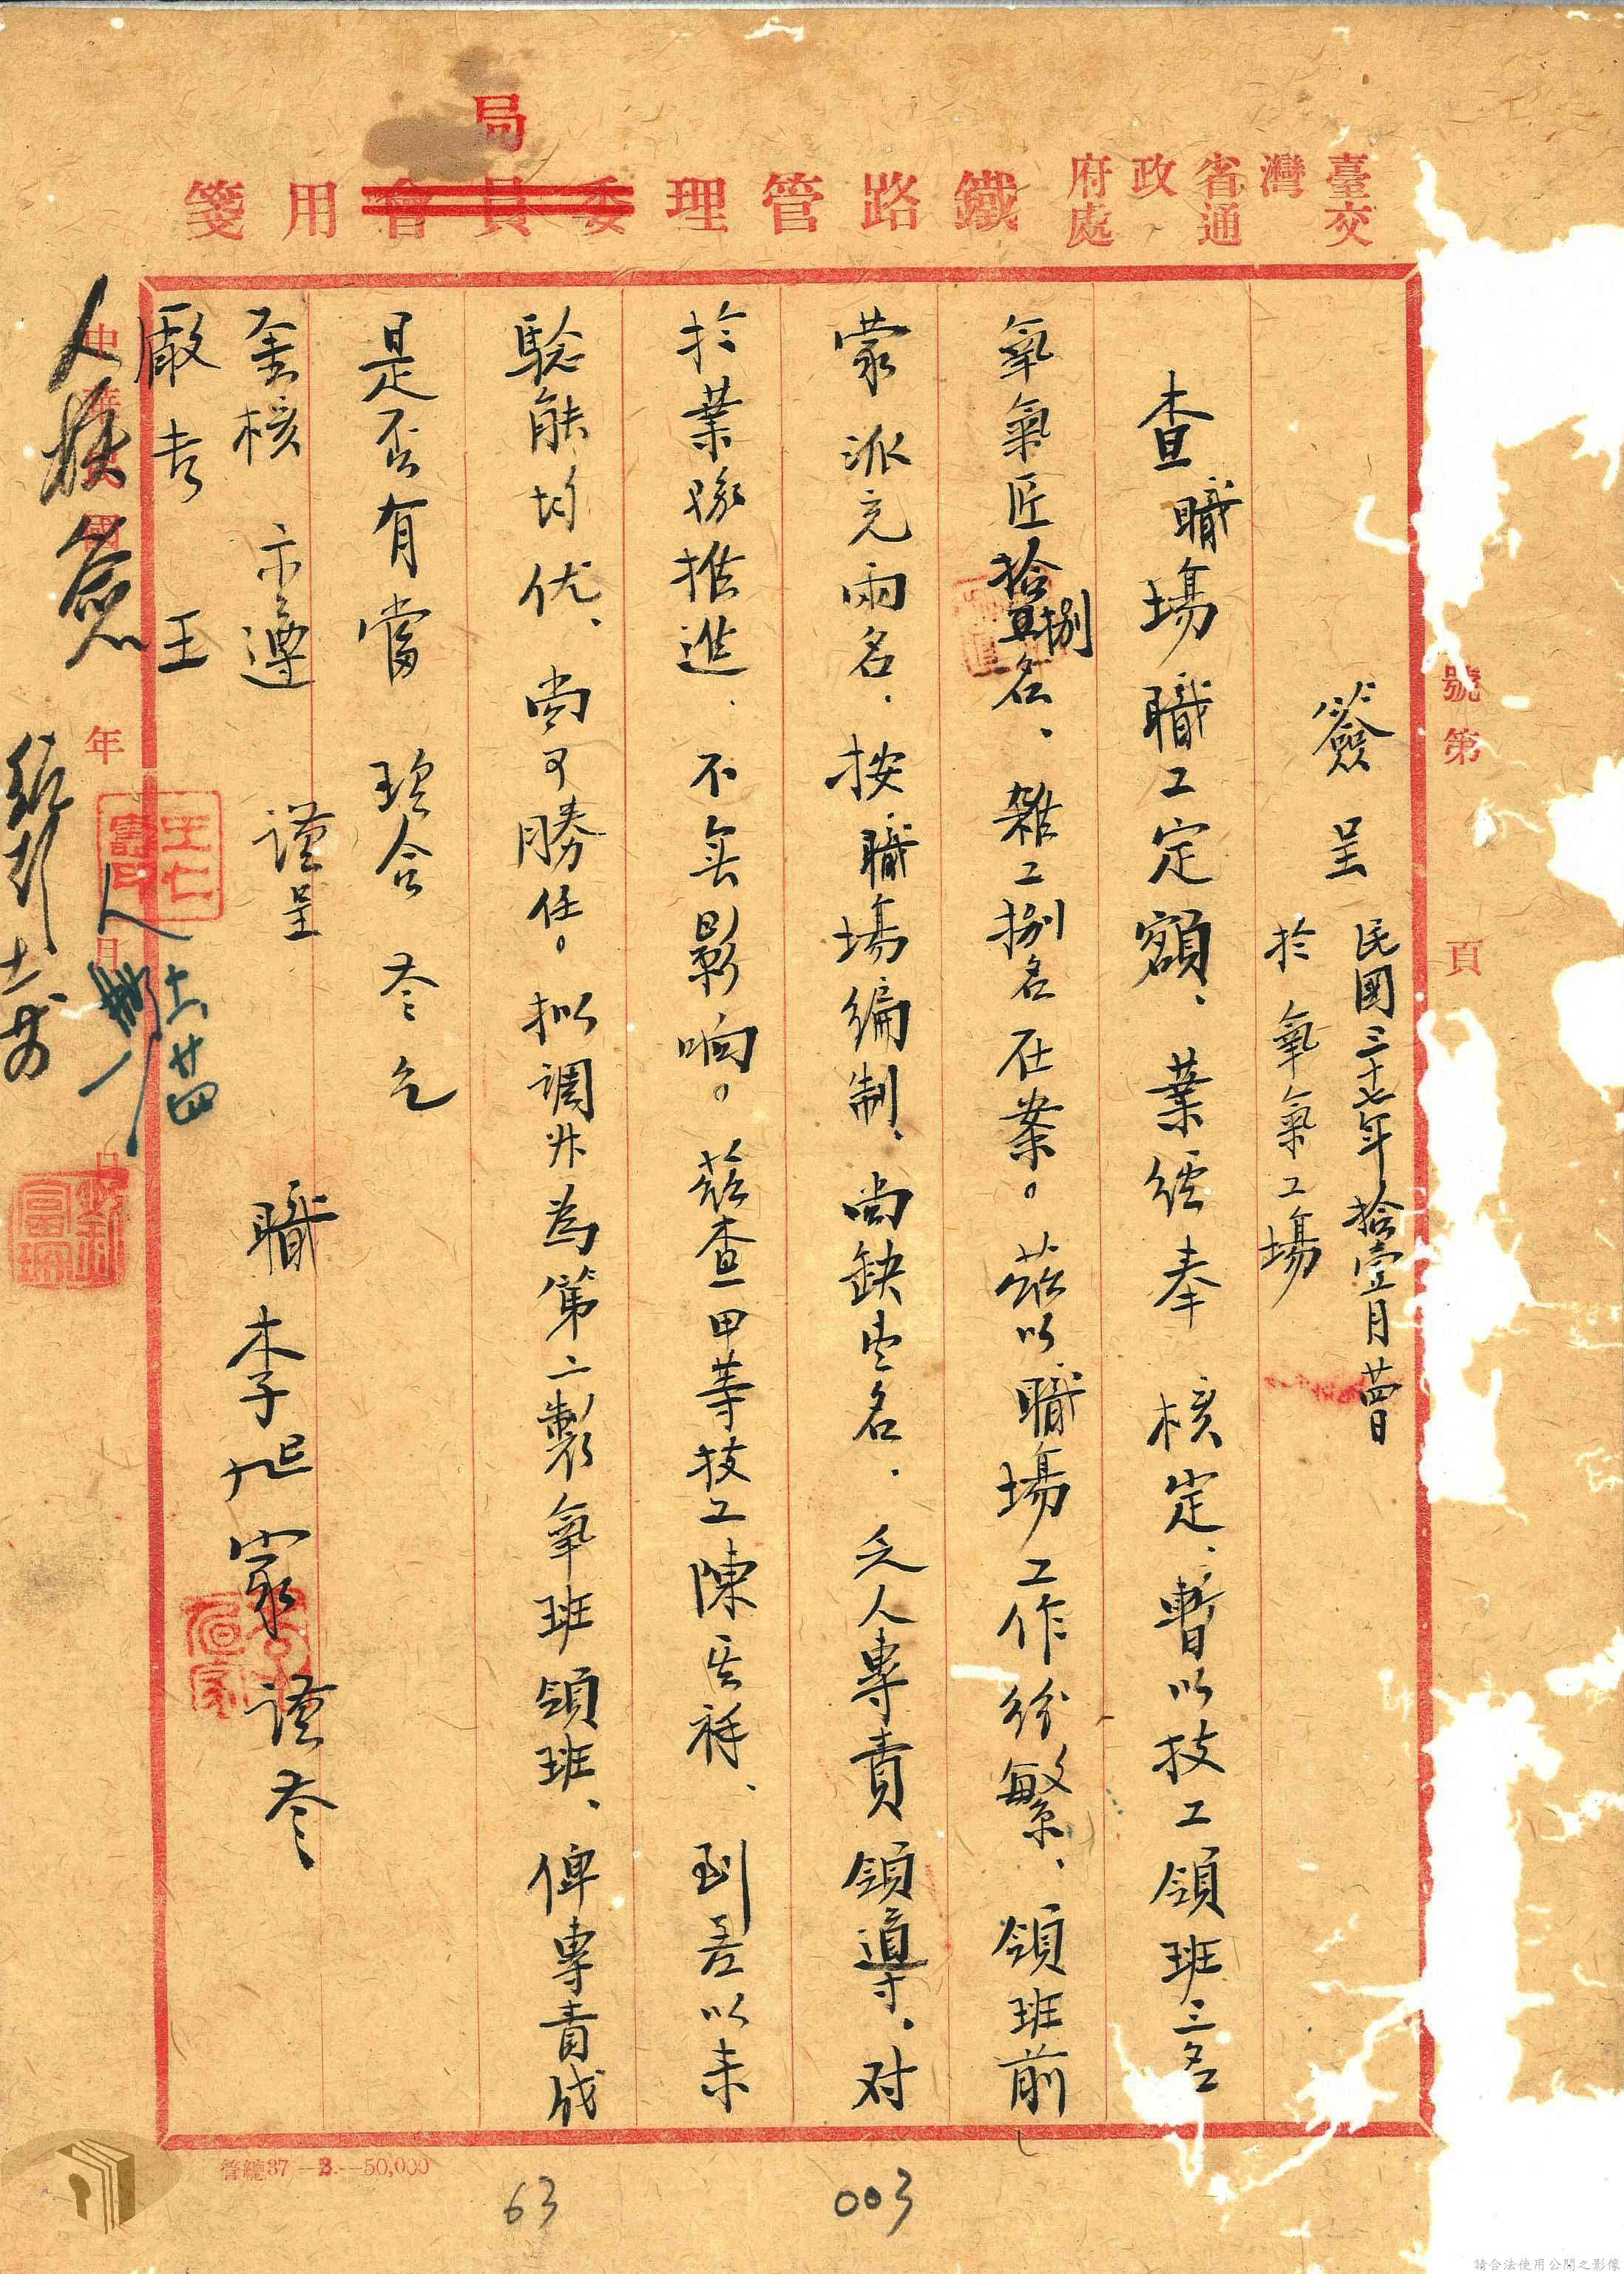 臺灣省政府
交通處
鐵路管理委員會用箋
局
號第 頁
簽呈 民國三十七年拾壹月廿四日
於氧氣工場
查職場職工定額、業経奉 核定、暫以技工領班三名
氧氣匠拾捌名、雜工捌名在案。茲以職場工作紛繁、領班前
蒙派充兩名.按職場編制、尚缺壹名.乏人專責領導、对
於業務推進、不無影响。茲查甲等技工陳 祥、到差以来
驗能均优、尚可勝任。拟調升為第二製氧班領班、俾專責成
是否有當 理合 签乞
鉴核 示遵 謹呈
廠長 王
職 李 家 謹签
人核簽
中華民國 年 月 日
王仁
十一 廿四
管總37-3.-50,000
63
003
請合法使用公開之影像